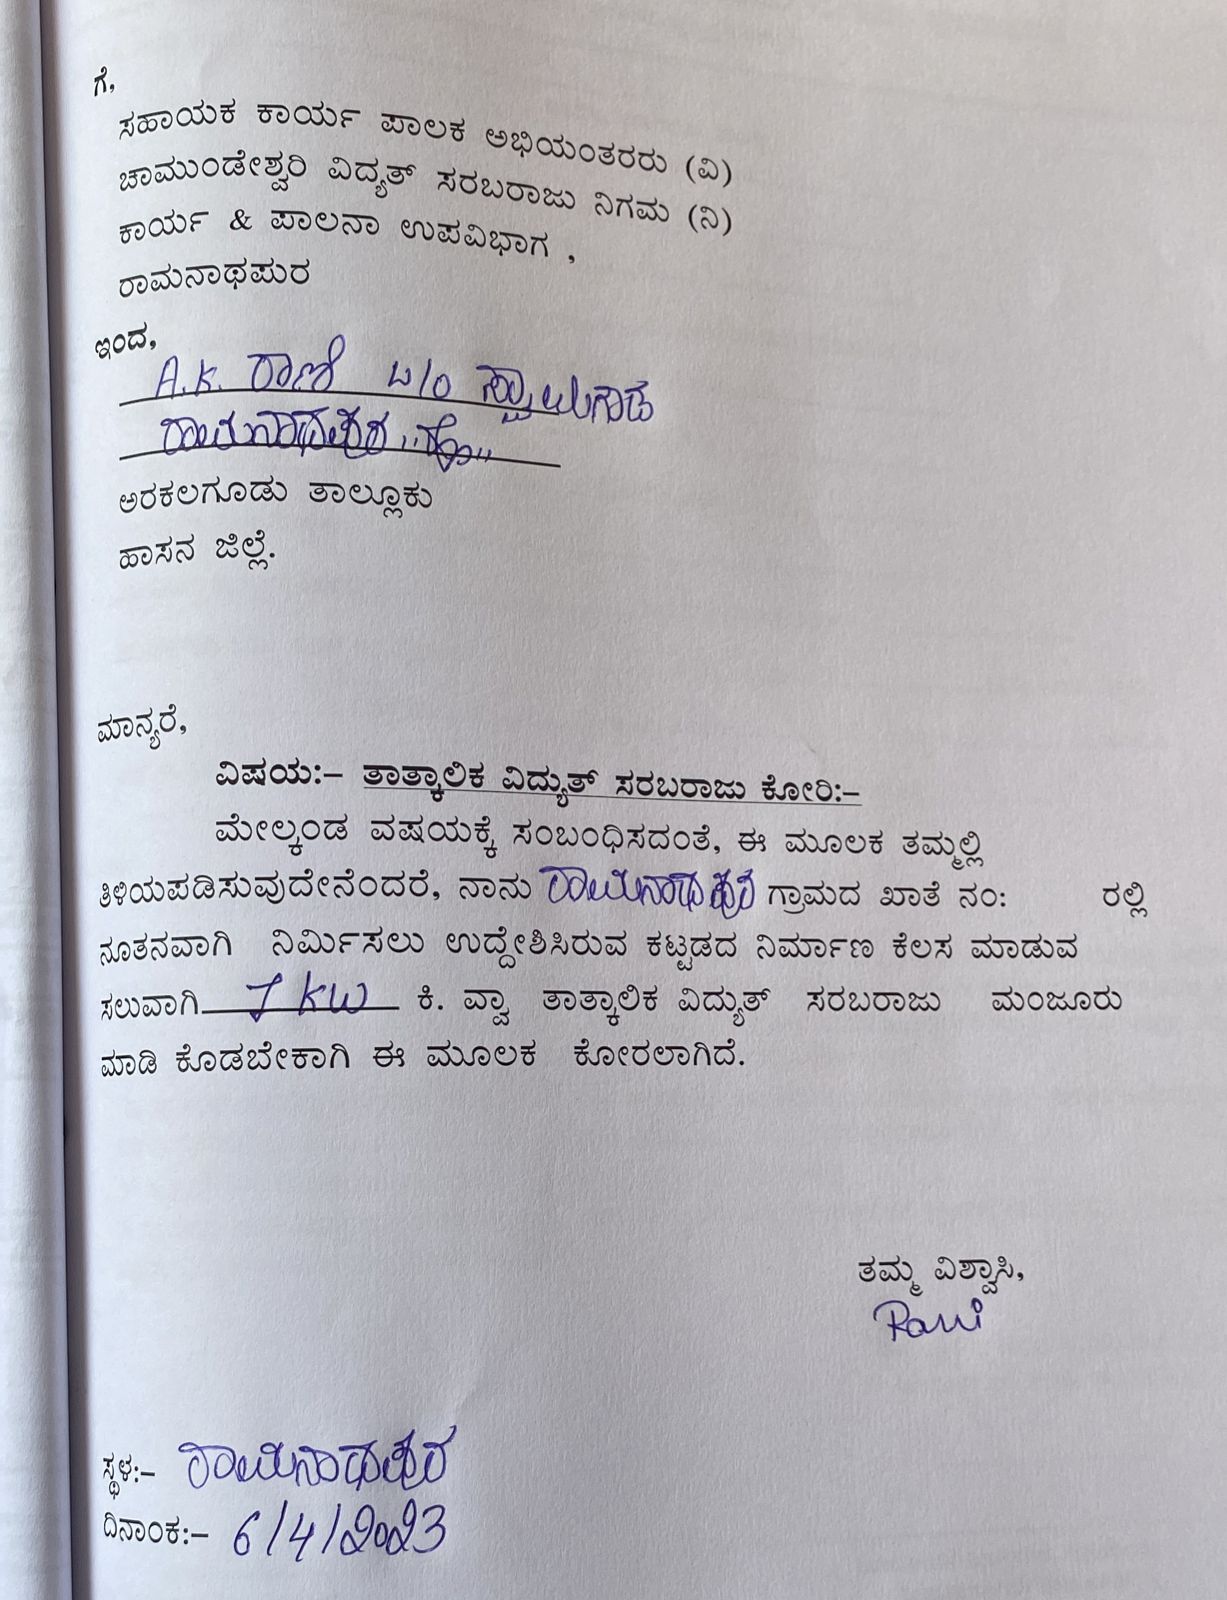 ಗೆ,
ಸಹಾಯಕ ಕಾರ್ಯ ಪಾಲಕ ಅಭಿಯಂತರರು (ವಿ)
ಚಾಮುಂಡೇಶ್ವರಿ ವಿದ್ಯತ್ ಸರಬರಾಜು ನಿಗಮ (ನಿ)
ಕಾರ್ಯ & ಪಾಲನಾ ಉಪವಿಭಾಗ ,
ರಾಮನಾಥಪುರ
ಇಂದ,
A.K. ರಾಣಿ w/o
ರಾಮನಾಥಪುರ
ಅರಕಲಗೂಡು ತಾಲ್ಲೂಕು
ಹಾಸನ ಜಿಲ್ಲೆ.
ಮಾನ್ಯರೆ,
ವಿಷಯ:- ತಾತ್ಕಾಲಿಕ ವಿದ್ಯುತ್ ಸರಬರಾಜು ಕೋರಿ:-
ಮೇಲ್ಕಂಡ ವಷಯಕ್ಕೆ ಸಂಬಂಧಿಸದಂತೆ, ಈ ಮೂಲಕ ತಮ್ಮಲ್ಲಿ
ತಿಳಿಯಪಡಿಸುವುದೇನೆಂದರೆ, ನಾನು ರಾಮನಾಥಪುರ ಗ್ರಾಮದ ಖಾತೆ ನಂ: ರಲ್ಲಿ
ನೂತನವಾಗಿ ನಿರ್ಮಿಸಲು ಉದ್ದೇಶಿಸಿರುವ ಕಟ್ಟಡದ ನಿರ್ಮಾಣ ಕೆಲಸ ಮಾಡುವ
ಸಲುವಾಗಿ 1 KW ಕಿ. ವ್ವಾ ತಾತ್ಕಾಲಿಕ ವಿದ್ಯುತ್ ಸರಬರಾಜು ಮಂಜೂರು
ಮಾಡಿ ಕೊಡಬೇಕಾಗಿ ಈ ಮೂಲಕ ಕೋರಲಾಗಿದೆ.
ತಮ್ಮ ವಿಶ್ವಾಸಿ,
Rani
ಸ್ಥಳ:- ರಾಮನಾಥಪುರ
ದಿನಾಂಕ:- 6/4/2023